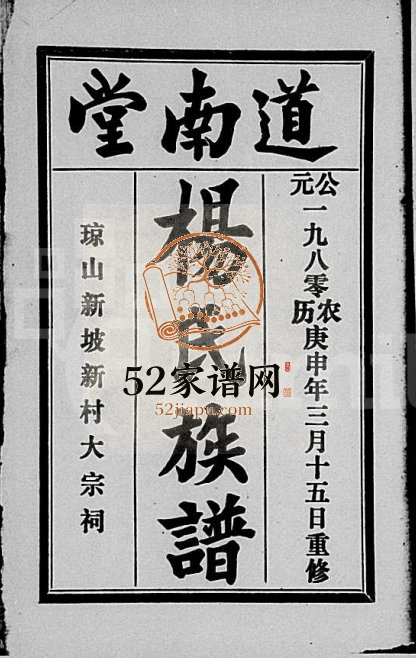 道南堂
公元一九八零农历庚申年三月十五日重修
楊氏族譜
琼山新坡新村大宗祠
52家谱网
52jiapu.com